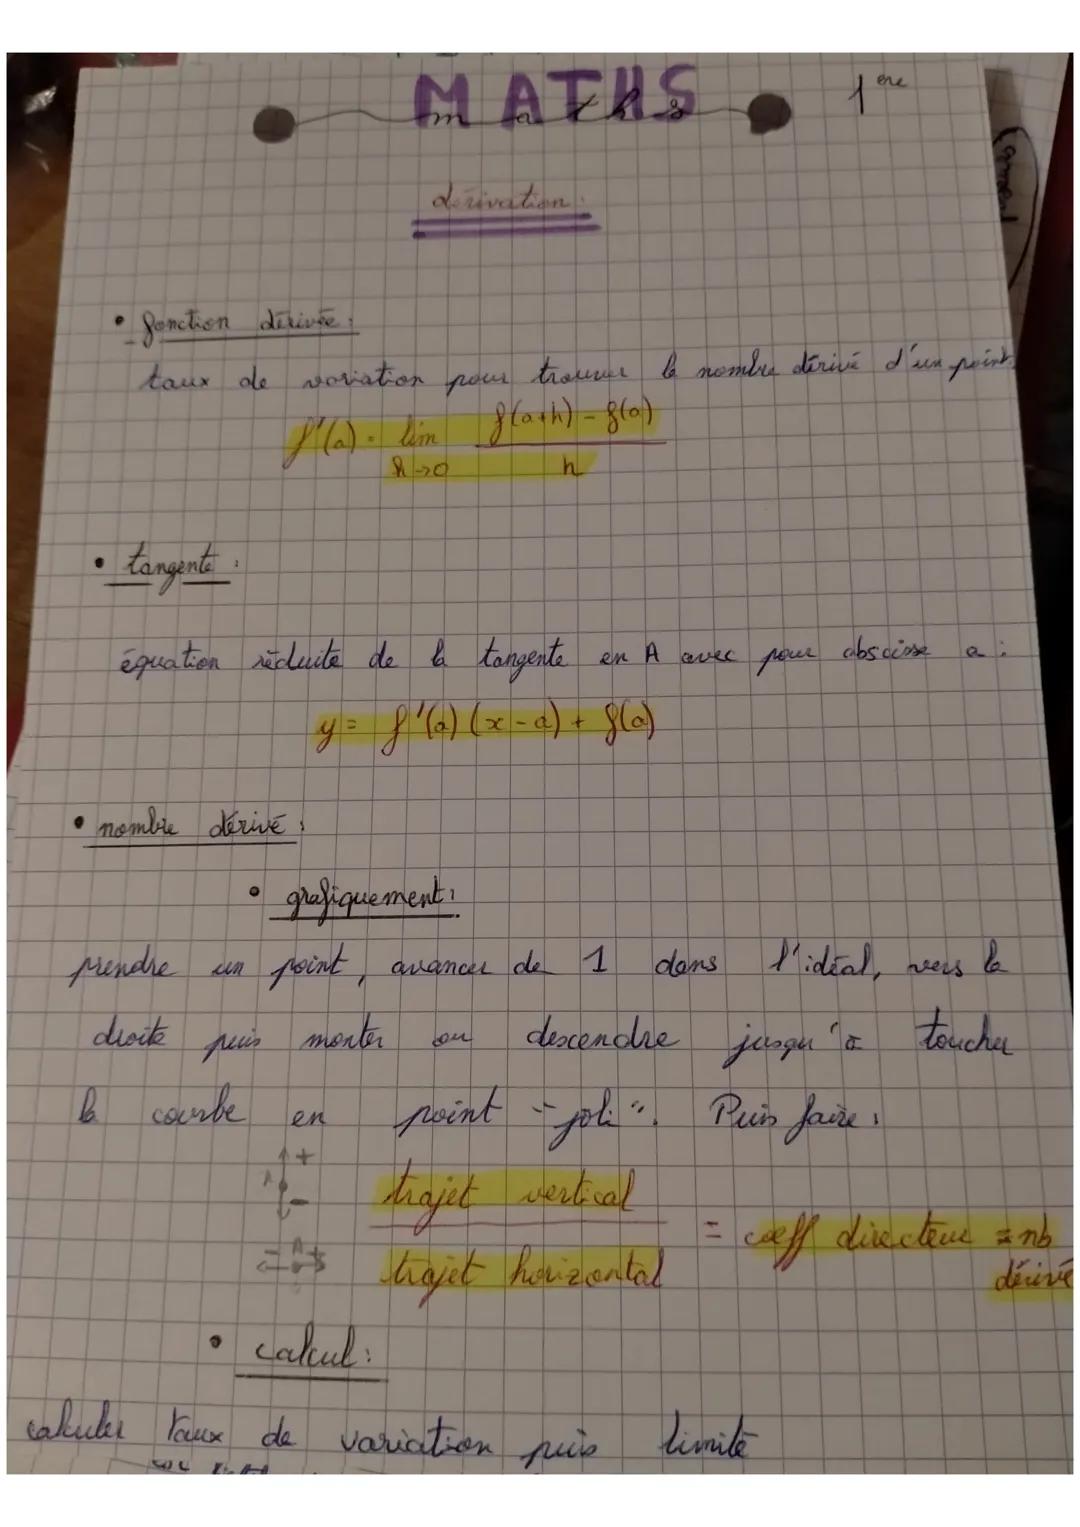 MATHS
maths
1 ère
dérivation :
• fonction dérivée :
taux de variation pour trouver le nombre dérivé d'un point.
f'(a) = lim f(a+h) - f(a)
h→0 h
• tangente :
équation réduite de la tangente en A avec pour abscisse a :
y = f'(a) (x - a) + f(a)
• nombre dérivé :
• grafiquement :
prendre un point, avancer de 1 dans l'idéal, vers la
droite puis monter ou descendre jusqu'à toucher
la courbe en point "joli". Puis faire :
A + -
trajet vertical
= coeff directeur = nb dérivé
- A +
trajet horizontal
• calcul :
calculer taux de variation puis limite